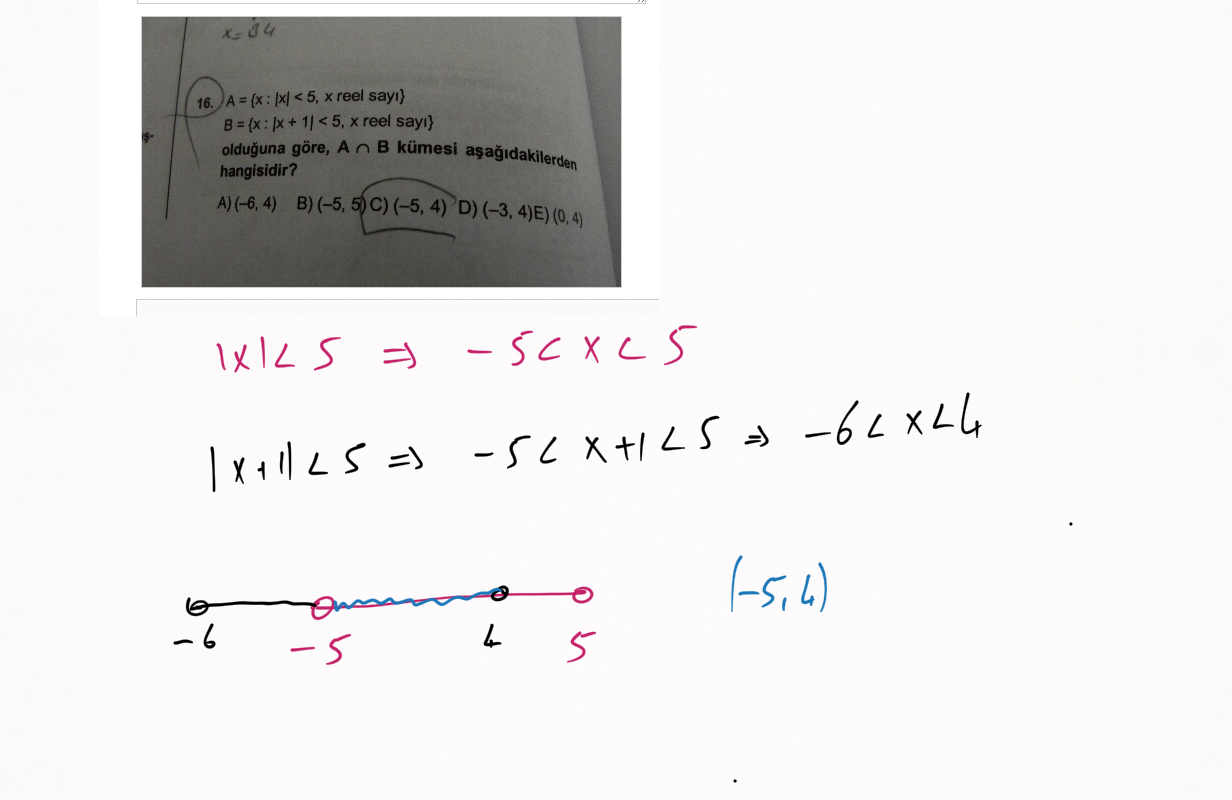 x=34
16. A = {x : |x| < 5, x reel sayı}
B = {x : |x + 1| < 5, x reel sayı}
olduğuna göre, A ∩ B kümesi aşağıdakilerden
hangisidir?
A) (−6, 4) B) (−5, 5) C) (−5, 4) D) (−3, 4) E) (0, 4)
|x|< 5 ⇒ -5 < x < 5
|x+1| < 5 ⇒ -5 < x+1 < 5 ⇒ -6 < x < 4
-6 -5 4 5
(-5, 4)